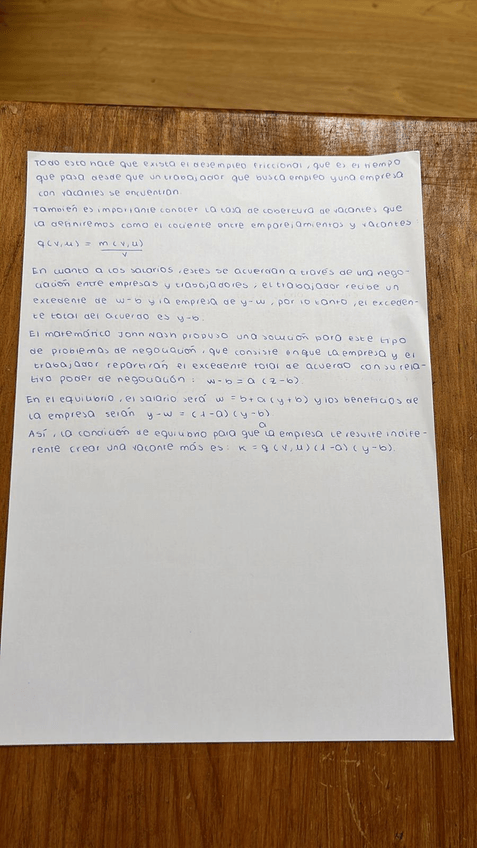 Todo esto hace que exista el desempleo friccional, que es el tiempo
que pasa desde que un trabajador que busca empleo y una empresa
con vacantes se encuentran.
También es importante conocer la tasa de cobertura de vacantes que
la definiremos como el cociente entre emparejamientos y vacantes:
q(v,u) = m(v,u)
v
En cuanto a los salarios, estes se acuerdan a través de una nego-
ciación entre empresas y trabajadores, el trabajador recibe un
excedente de w-b y la empresa de y-w, por lo tanto, el exceden-
te total del acuerdo es y-b.
El matemático John Nash propuso una solución para este tipo
de problemas de negociación, que consiste en que la empresa y el
trabajador repartirán el excedente total de acuerdo con su rela-
tivo poder de negociación: w-b = a(z-b).
En el equilibrio, el salario será w = b+a(y+b) y los beneficios de
la empresa serán y-w = (1-a)(y-b).
a
Así, la condición de equilibrio para que la empresa le resulte indife-
rente crear una vacante más es: k = q(v,u)(1-a)(y-b).